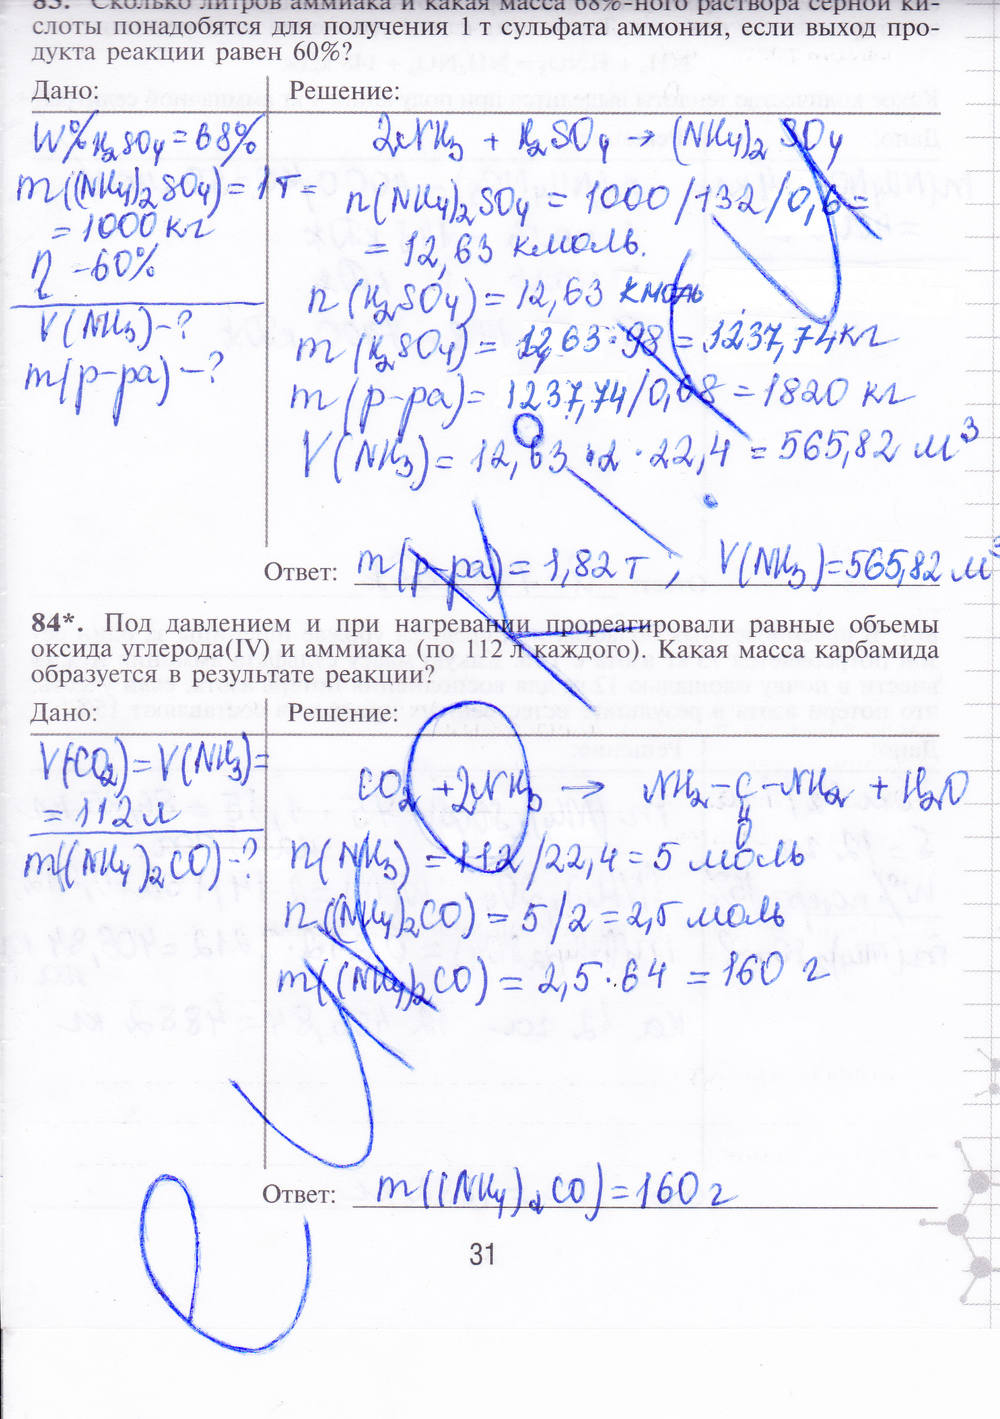 83. Сколько литров аммиака и какая масса 68%-ного раствора серной ки-
слоты понадобятся для получения 1 т сульфата аммония, если выход про-
дукта реакции равен 60%?
Дано: Решение:
W% H₂SO₄ = 68%
m((NH₄)₂SO₄) = 1т =
= 1000 кг
η - 60%
V(NH₃) - ?
m(р-ра) - ?
2NH₃ + H₂SO₄ → (NH₄)₂SO₄
n(NH₄)₂SO₄ = 1000/132/0,6 =
= 12,63 кмоль.
n(H₂SO₄) = 12,63 кмоль
m(H₂SO₄) = 12,63·98 = 1237,74 кг
m(р-ра) = 1237,74/0,68 = 1820 кг
V(NH₃) = 12,63·2·22,4 = 565,82 м³
Ответ: m(р-ра) = 1,82 т, V(NH₃) = 565,82 м³
84*. Под давлением и при нагревании прореагировали равные объемы
оксида углерода(IV) и аммиака (по 112 л каждого). Какая масса карбамида
образуется в результате реакции?
Дано: Решение:
V(CO₂) = V(NH₃) =
= 112 л
m((NH₄)₂CO) - ?
CO₂ + 2NH₃ → NH₂-C-NH₂ + H₂O
O
n(NH₃) = 112/22,4 = 5 моль
n((NH₄)₂CO) = 5/2 = 2,5 моль
m((NH₄)₂CO) = 2,5·64 = 160 г
Ответ: m((NH₄)₂CO) = 160 г
31